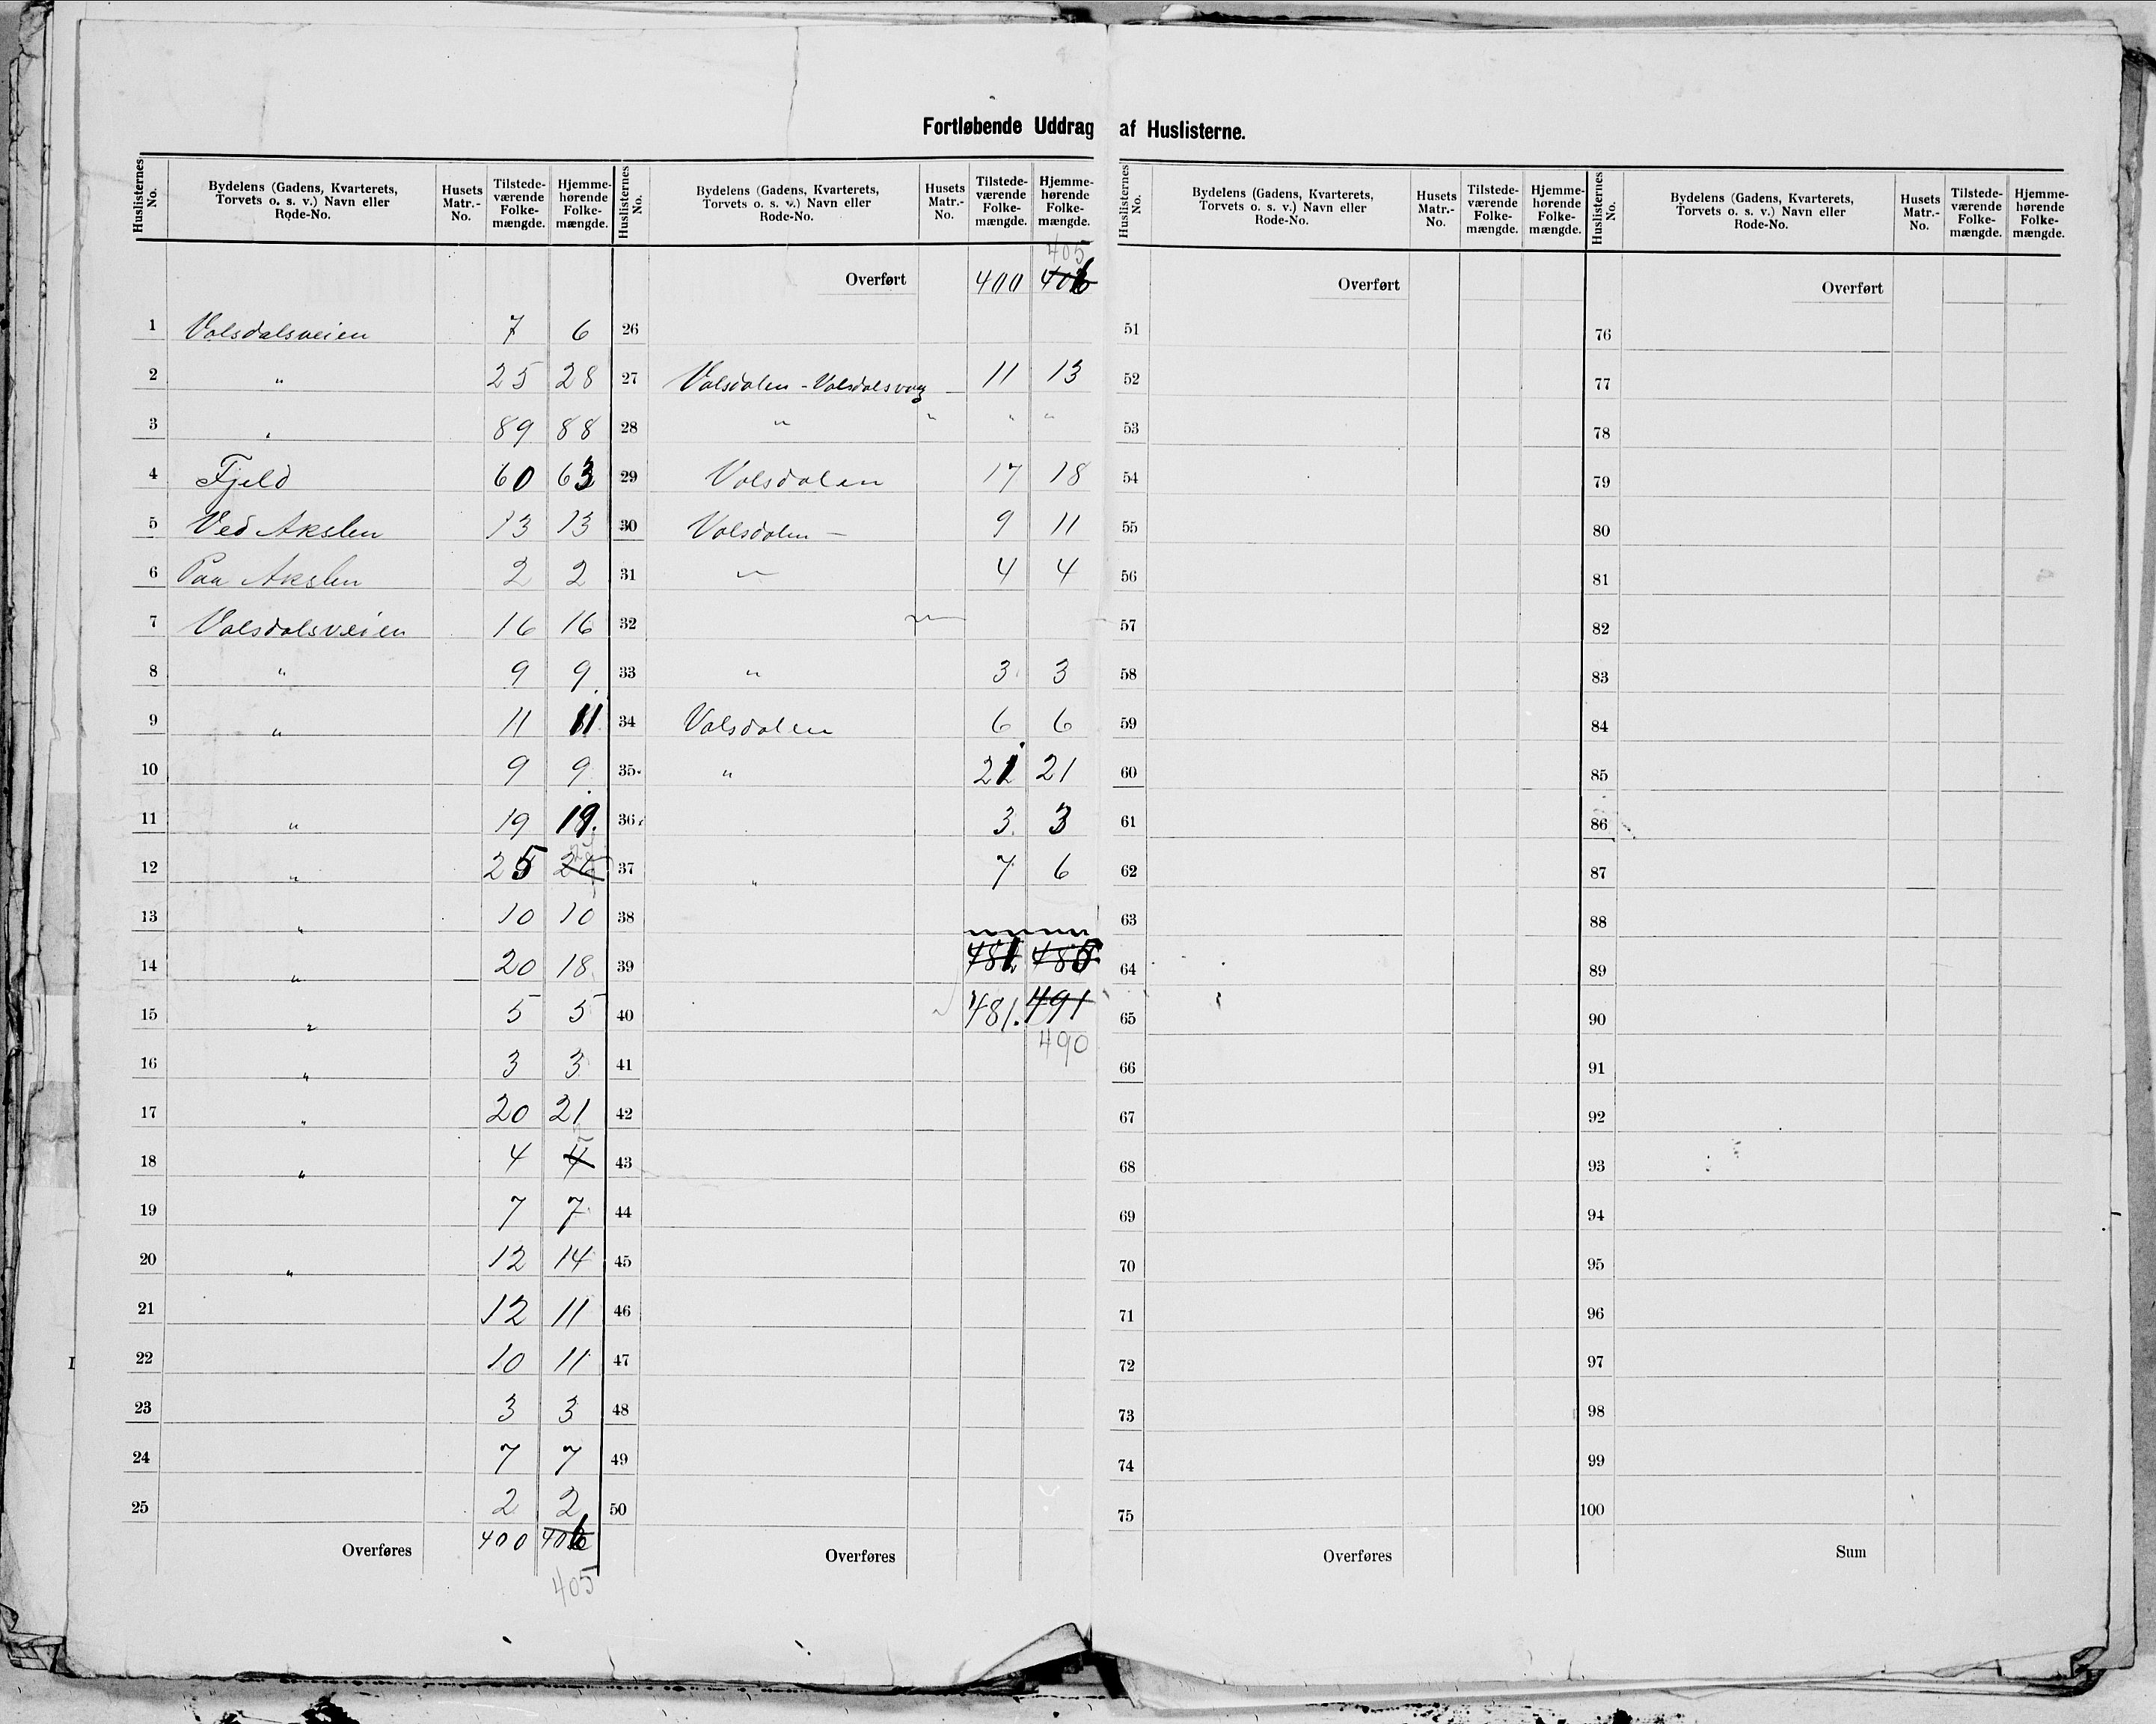 Fortløbende Uddrag af Huslisterne.
Huslisternes No. Bydelens (Gadens, Kvarterets, Torvets o. s. v.) Navn eller Rode-No. Husets Matr.-No. Tilstedeværende Folkemængde. Hjemmehørende Folkemængde.
1 Volsdalsveien 7 6
2 " 25 28
3 " 89 88
4 Fjeld 60 63
5 Ved Akslen 13 13
6 Paa Akslen 2 2
7 Volsdalsveien 16 16
8 " 9 9
9 " 11 11
10 9 9
11 " 19 19.
12 " 25
13 " 10 10
14 " 20 18
15 " 5 5
16 " 3 3
17 " 20 21
18 " 4 4
19 7 7
20 " 12 14
21 12 11
22 10 11
23 3 3
24 7 7
25 2 2
Overføres 400 406
405
Huslisternes No. Bydelens (Gadens, Kvarterets, Torvets o. s. v.) Navn eller Rode-No. Husets Matr.-No. Tilstedeværende Folkemængde. Hjemmehørende Folkemængde.
405
Overført 400 406
26
27 Volsdalen - Volsdalsvaag 11 13
28 " " " "
29 Volsdalen 17 18
30 Volsdalen — 9 11
31 " 4 4
32
33 " 3 3
34 Volsdalen 6 6
35 " 21 21
36 3 3
37 " 7 6
38
39 481 485
40 481. 491
490
41
42
43
44
45
46
47
48
49
50
Overføres
Huslisternes No. Bydelens (Gadens, Kvarterets, Torvets o. s. v.) Navn eller Rode-No. Husets Matr.-No. Tilstedeværende Folkemængde. Hjemmehørende Folkemængde.
Overført
51
52
53
54
55
56
57
58
59
60
61
62
63
64
65
66
67
68
69
70
71
72
73
74
75
Overføres
Huslisternes No. Bydelens (Gadens, Kvarterets, Torvets o. s. v.) Navn eller Rode-No. Husets Matr.-No. Tilstedeværende Folkemængde. Hjemmehørende Folkemængde.
Overført
76
77
78
79
80
81
82
83
84
85
86
87
88
89
90
91
92
93
94
95
96
97
98
99
100
Sum